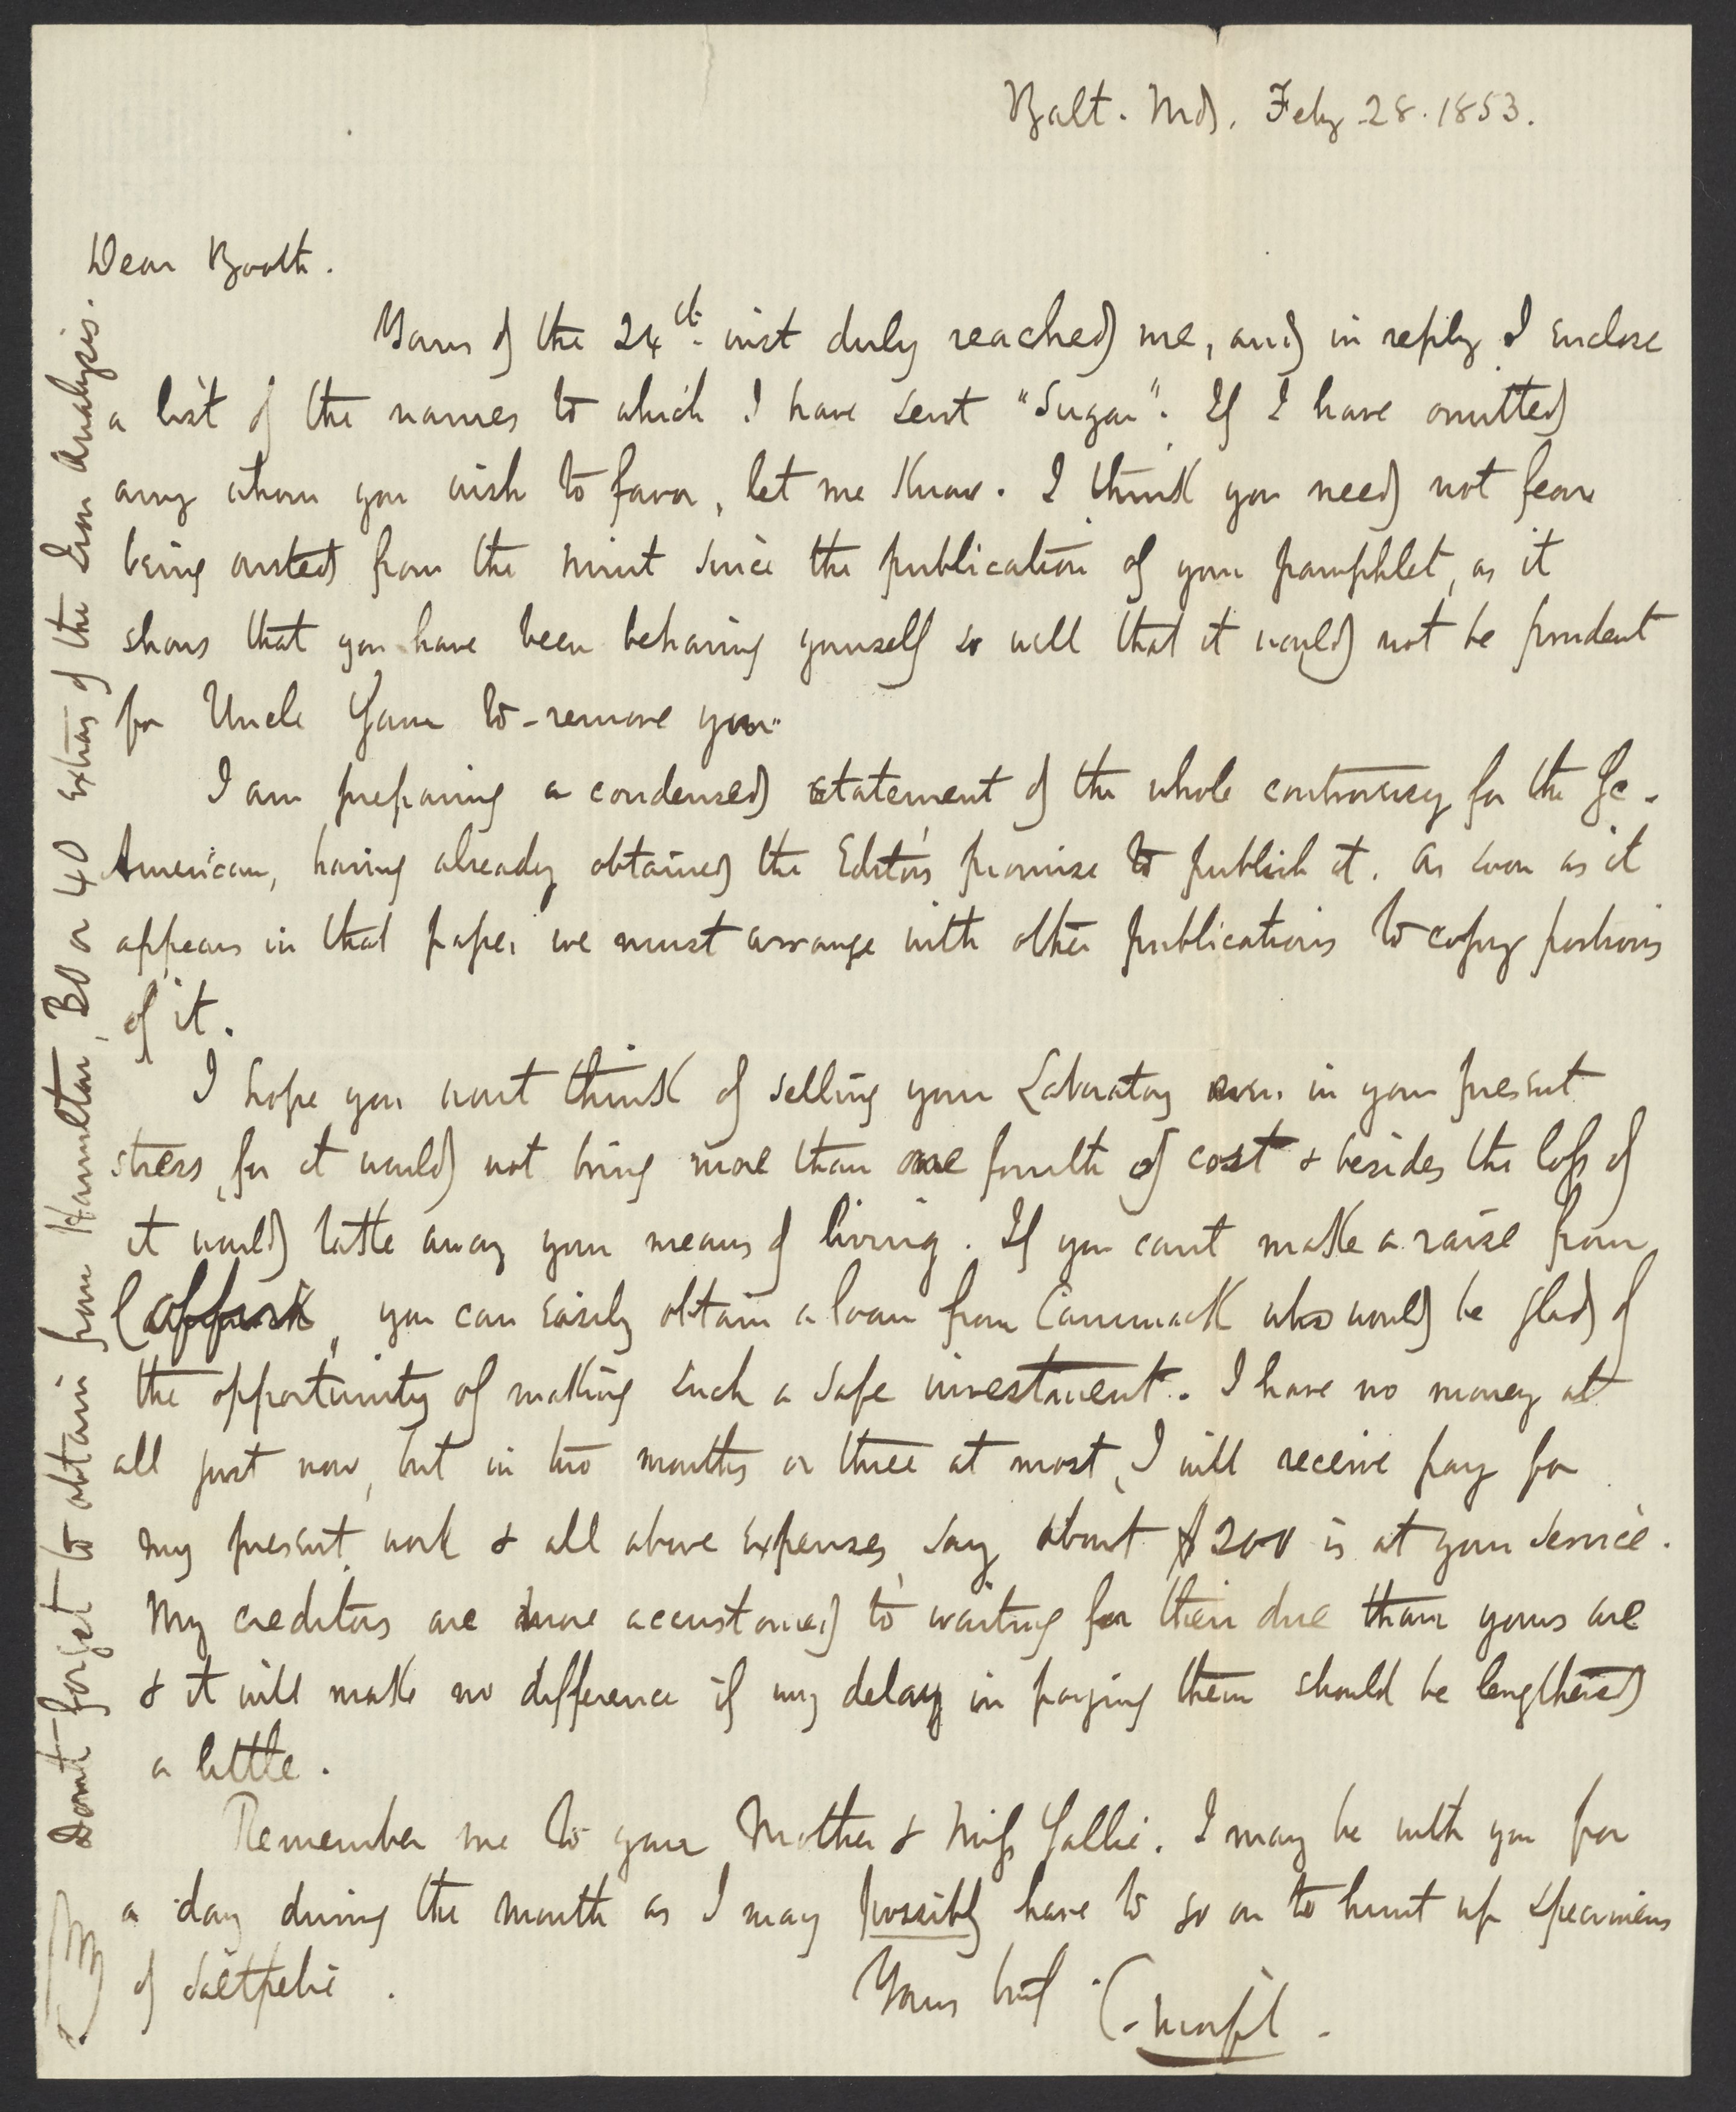 Balt. Md. Feby 28. 1853.
Dear Booth.
Yours of the 24th inst duly reached me, and in reply I enclose
a list of the names to which I have sent "Sugar". If I have omitted
any whom you wish to favor, let me know. I think you need not fear
being ousted from the mint since the publication of your pamphlet, as it
shows that you have been behaving yourself so well that it would not be prudent
for Uncle Sam to remove you.
I am preparing a condensed statement of the whole controversy for the Sc.
American, having already obtained the Editor's promise to publish it. As soon as it
appears in that paper we must arrange with other publications to copy portions
of it.
I hope you wont think of selling your Laboratory even in your present
stress, for it would not bring more than one fourth of cost & besides the loss of
it would take away your means of living. If you cant make a raise from
you can easily obtain a loan from Cammack who would be glad of
the opportunity of making such a safe investment. I have no money at
all just now, but in two months or three at most, I will receive pay for
my present work & all above expenses, say about $200 is at your service.
My creditors are more accustomed to waiting for their due than yours are
& it will make no difference if my delay in paying them should be lengthened
a little.
Remember me to your Mother & Miss Sallie. I may be with you for
a day during the month as I may possibly have to go on to hunt up specimens
of Saltpetre.
Yours truly
C. Morfit.
Dont forget to obtain from Hamilton, 30 or 40 extras of the Iron Analysis.